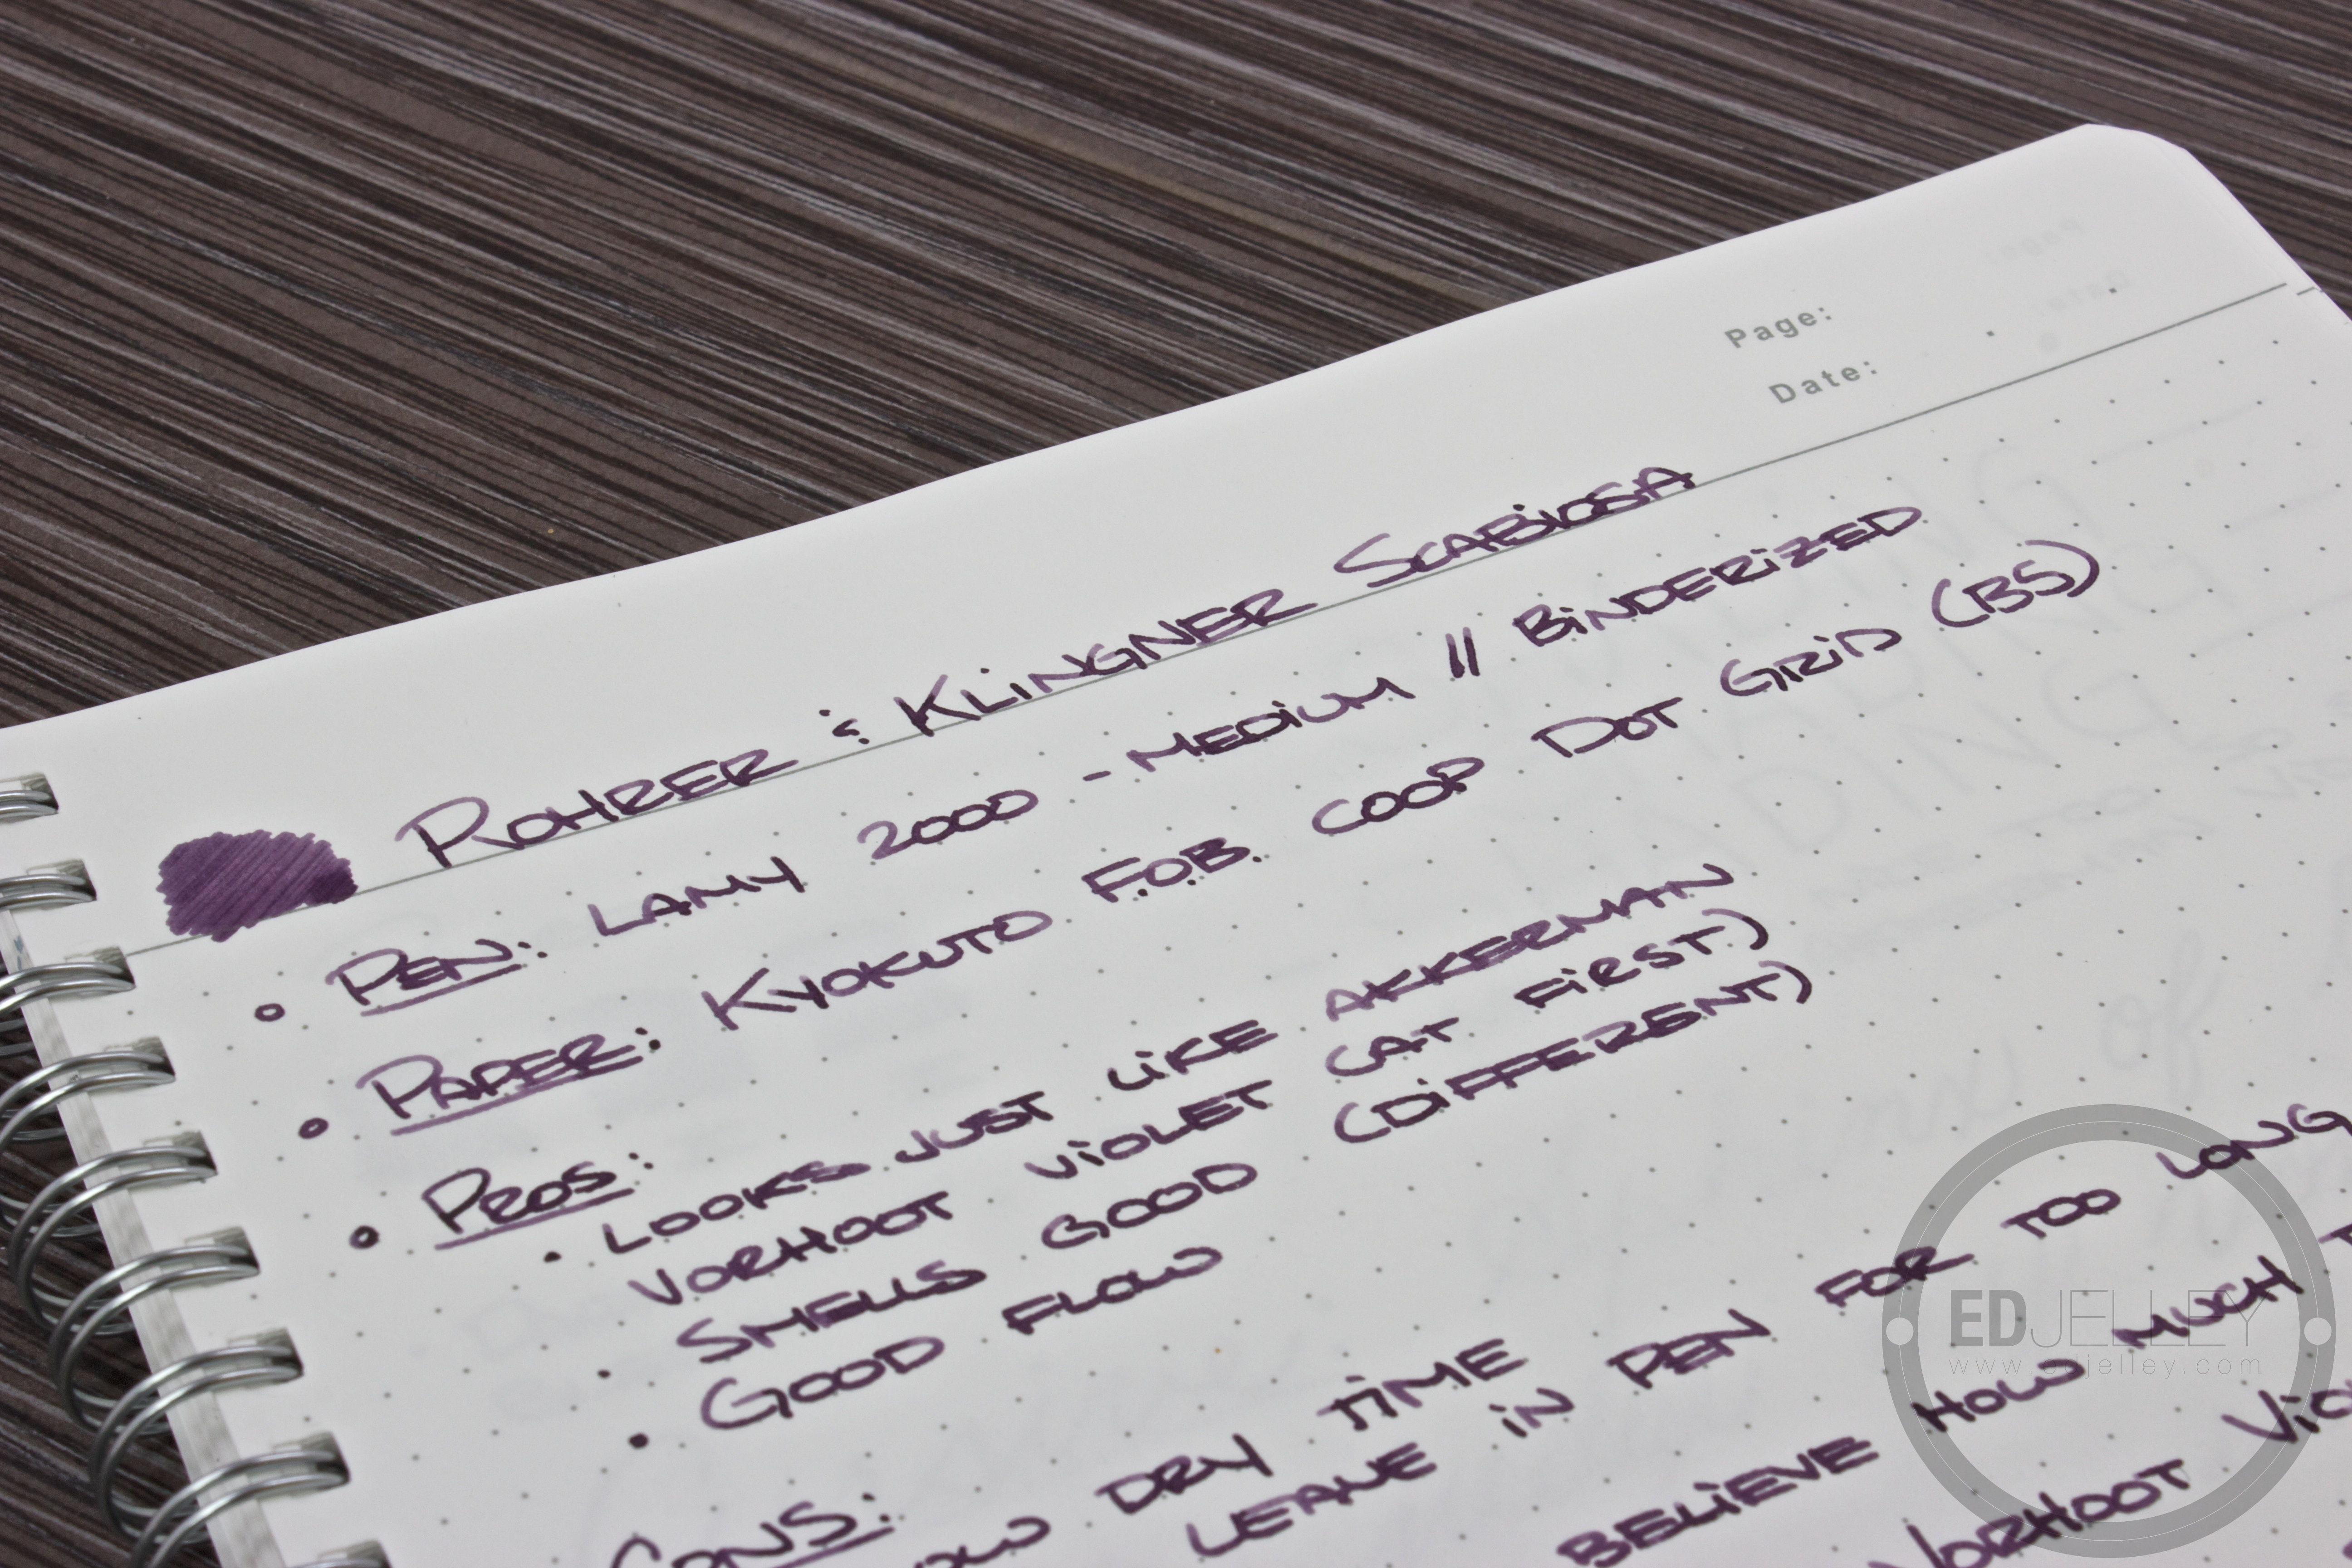 Page:
Date:
ROHRER & KLINGNER SCABIOSA
• PEN: LAMY 2000 - MEDIUM // BINDERIZED
• PAPER: KYOKUTO F.O.B. COOP DOT GRID (B5)
• PROS:
• LOOKS JUST LIKE AKKERMAN
VORHOOT VIOLET (AT FIRST)
• SMELLS GOOD (DIFFERENT)
• GOOD FLOW
CONS:
DRY TIME
LEAVE IN PEN FOR TOO LONG
BELIEVE HOW MUCH
VORHOOT
EDJELLEY
www.edjelley.com